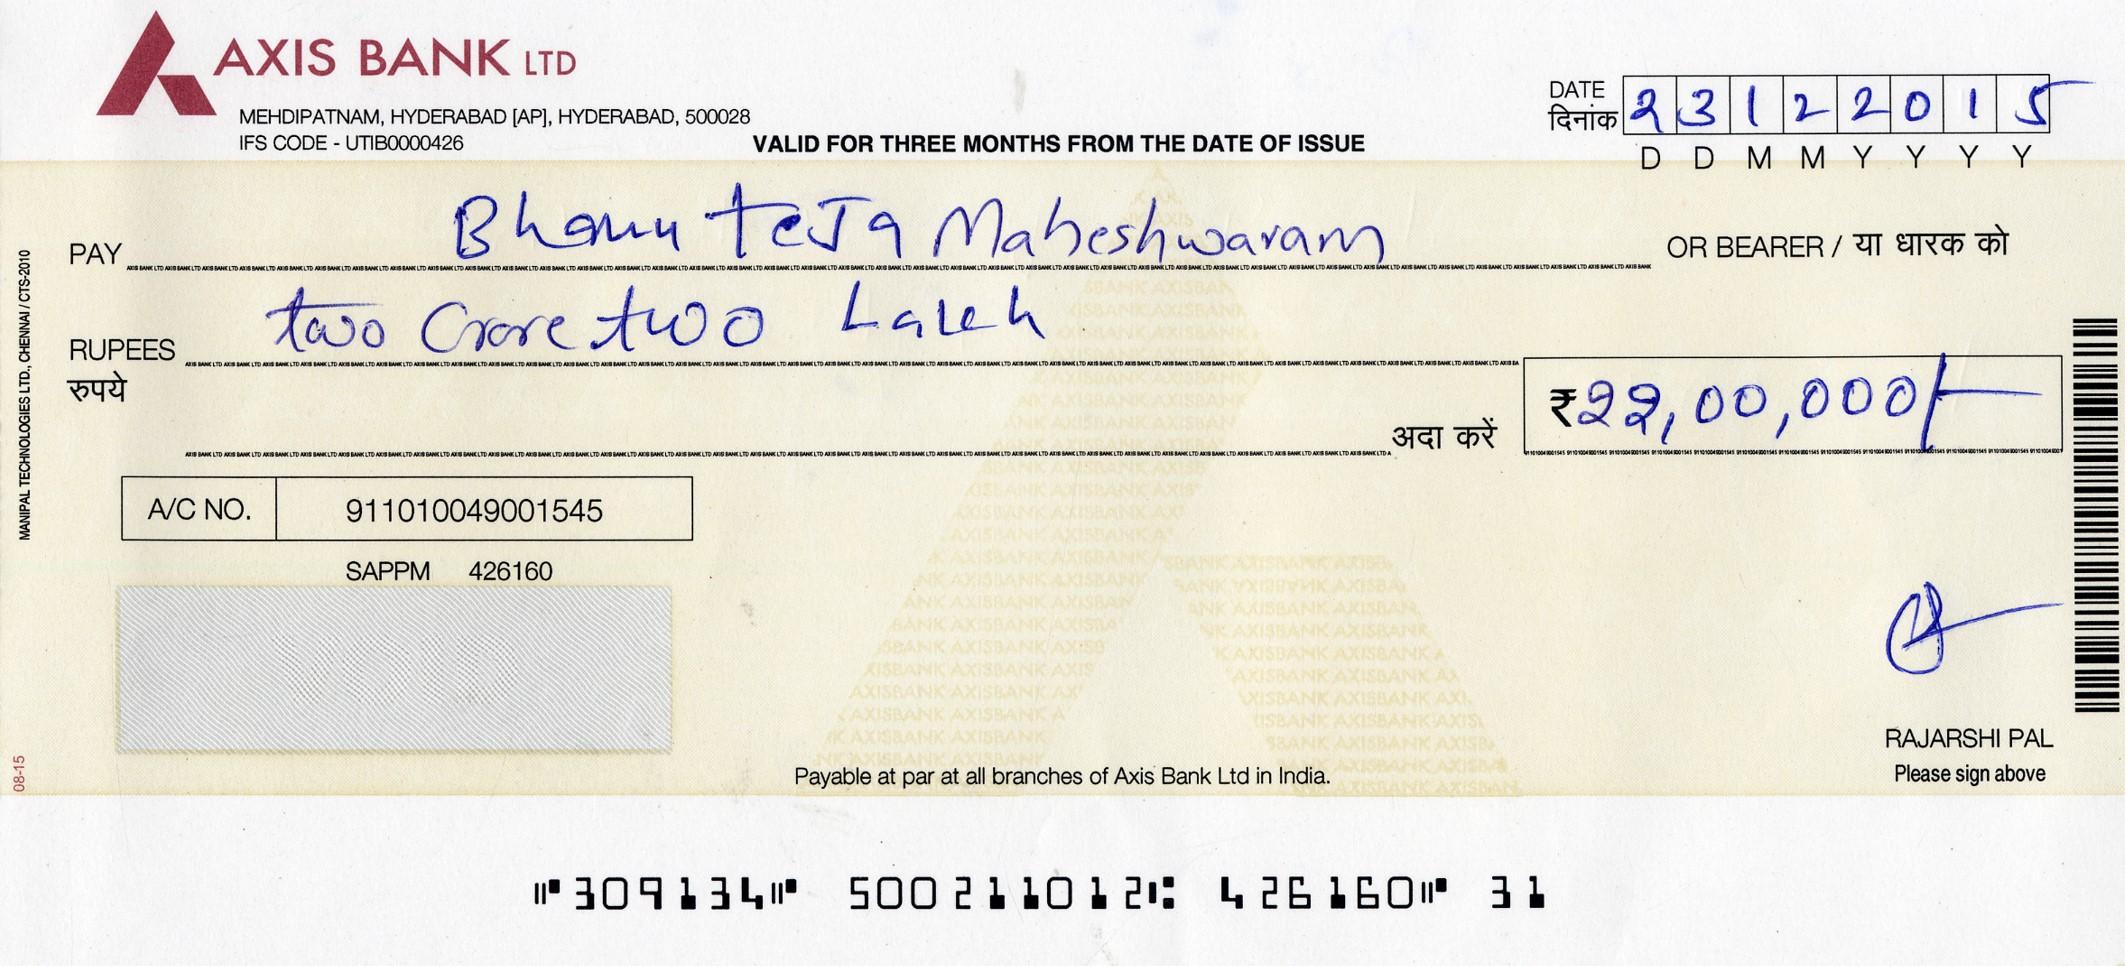 AXIS BANK LTD
MEHDIPATNAM, HYDERABAD [AP], HYDERABAD, 500028
IFS CODE - UTIB0000426
VALID FOR THREE MONTHS FROM THE DATE OF ISSUE
DATE
दिनांक 2 3 1 2 2 0 1 5
D D M M Y Y Y Y
PAY Bhanu teJa Maheshwaram OR BEARER / या धारक को
RUPEES two Crore two Lakh
रुपये
अदा करें ₹22,00,000/-
A/C NO. 911010049001545
SAPPM 426160
VOID
RAJARSHI PAL
Please sign above
Payable at par at all branches of Axis Bank Ltd in India.
MANIPAL TECHNOLOGIES LTD., CHENNAI / CTS-2010
08-15
⑈309134⑈ 500211012⑆ 426160⑈ 31